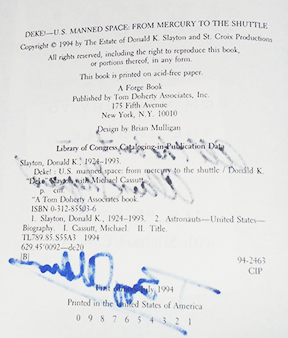 DEKE!—U.S. MANNED SPACE: FROM MERCURY TO THE SHUTTLE
Copyright © 1994 by The Estate of Donald K. Slayton and St. Croix Productions
All rights reserved, including the right to reproduce this book,
or portions thereof, in any form.
This book is printed on acid-free paper.
A Forge Book
Published by Tom Doherty Associates, Inc.
175 Fifth Avenue
New York, N.Y. 10010
Design by Brian Mulligan
Library of Congress Cataloging-in-Publication Data
Slayton, Donald K., 1924–1993.
Deke! : U.S. manned space : from mercury to the shuttle / Donald K.
"Deke" Slayton with Michael Cassutt.
p. cm.
"A Tom Doherty Associates book."
ISBN 0-312-85503-6
1. Slayton, Donald K., 1924–1993. 2. Astronauts—United States—
Biography. I. Cassutt, Michael. II. Title.
TL789.85.S55A3 1994
629.45'0092—dc20
[B] 94-2463
CIP
First July 1994
Printed in the United States of America
0 9 8 7 6 5 4 3 2 1